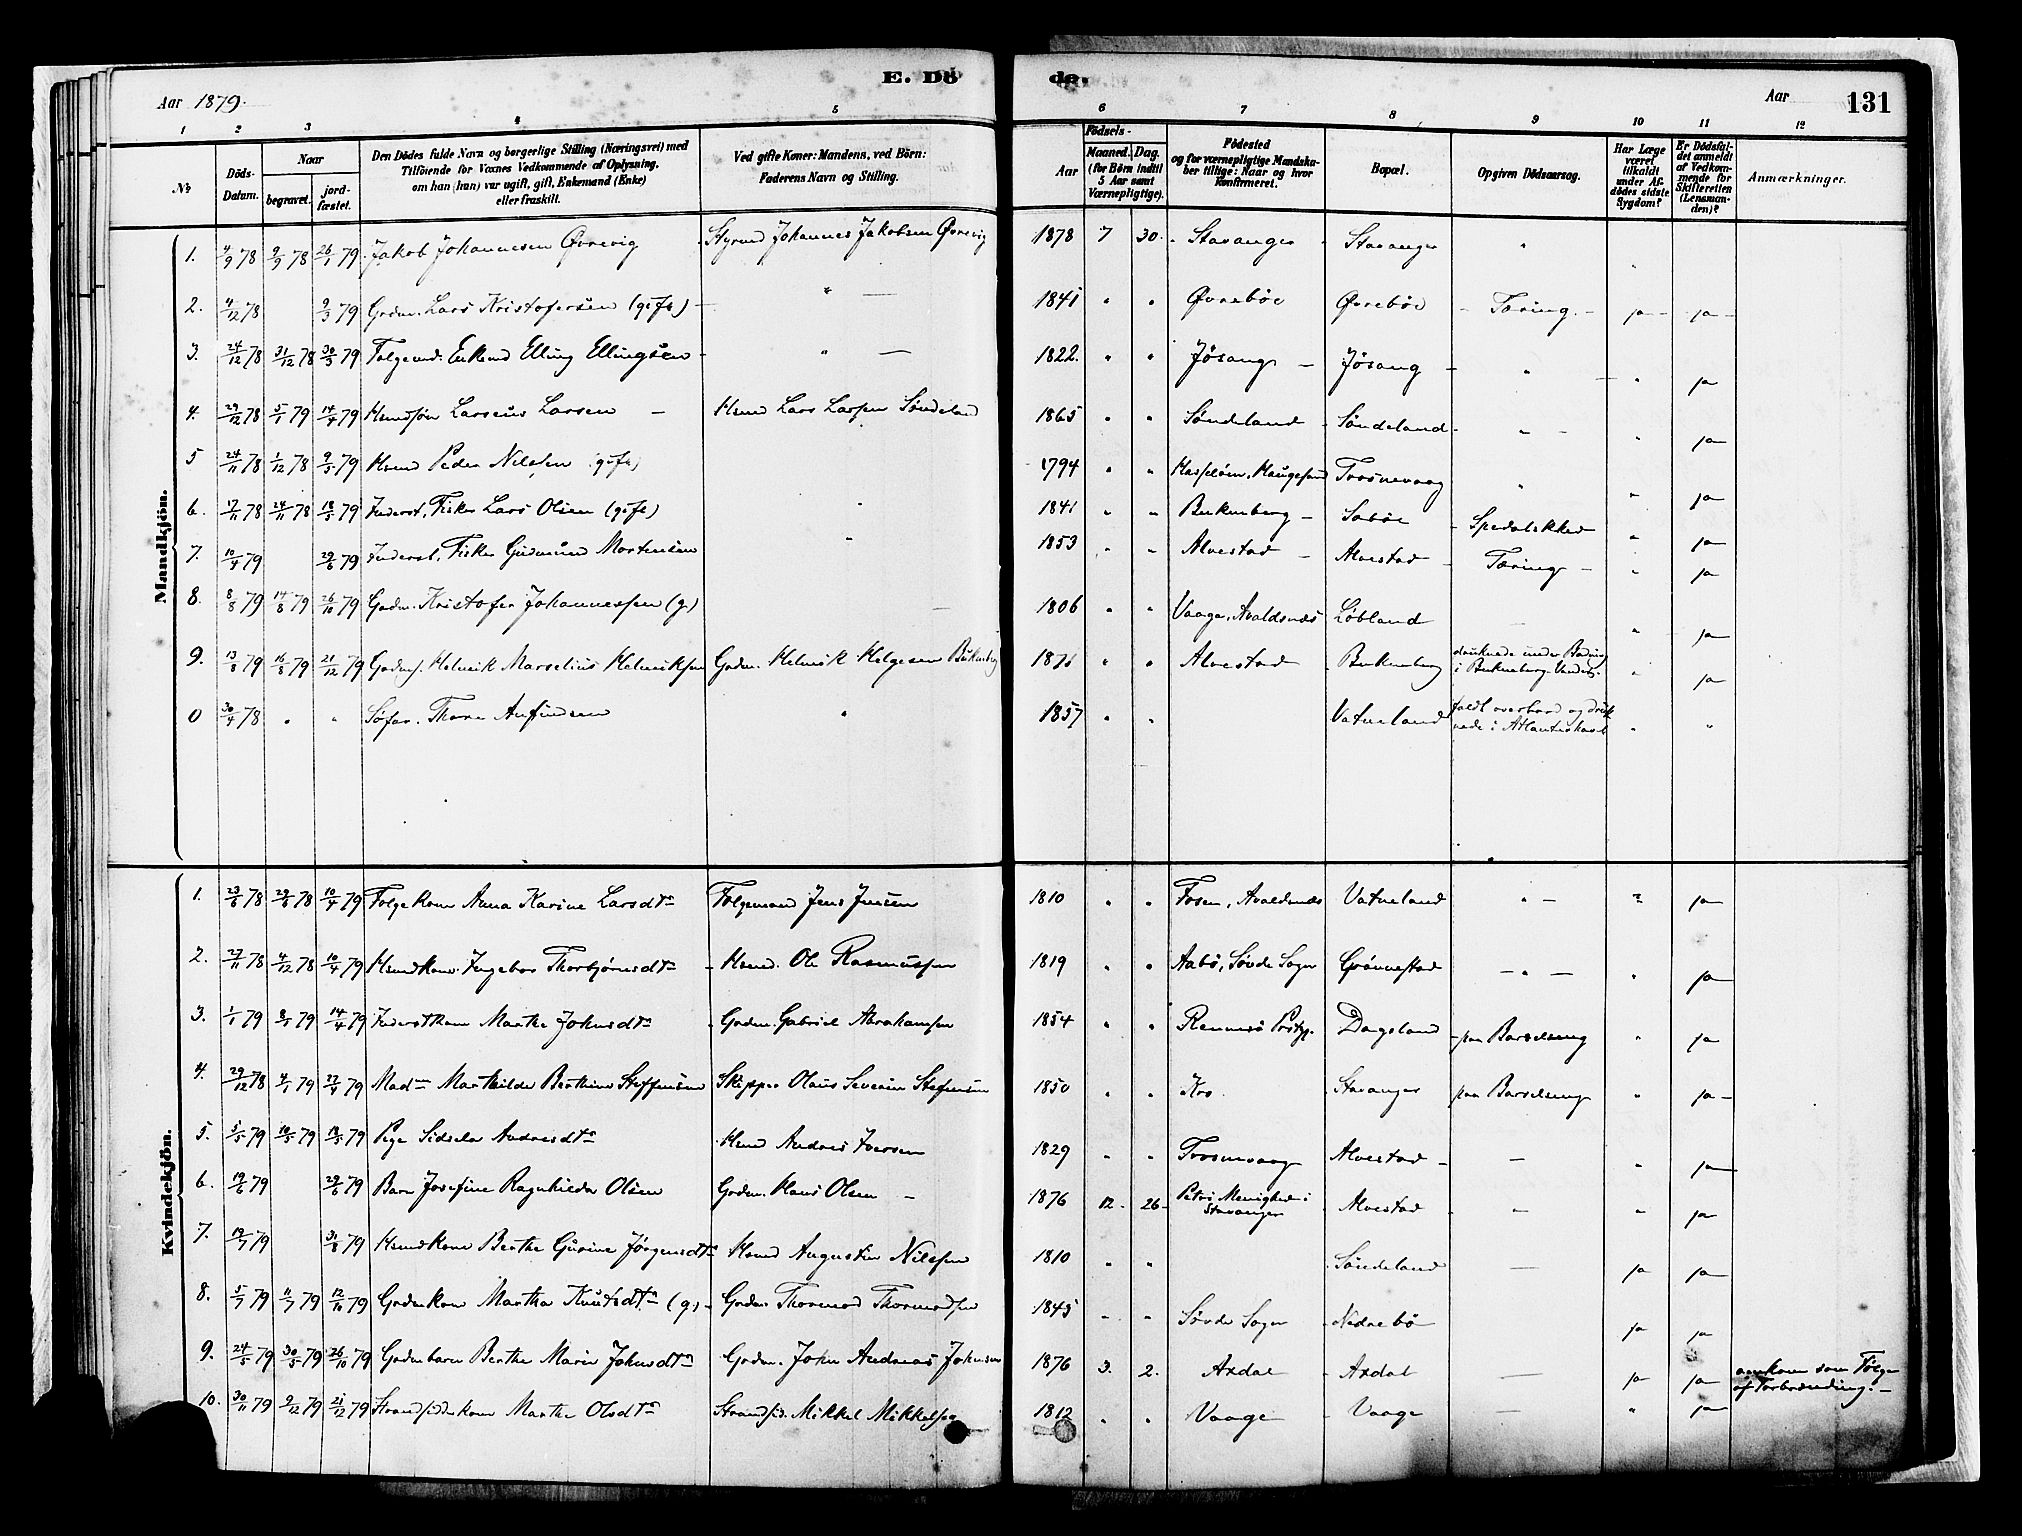 E. Dö de.
Aar 1879.
Aar 131
1 2 3 4 5 6 7 8 9 10 11 12
No
Döds-Datum.
Naar
begravet.
jord-fæstet.
Den Dödes fulde Navn og borgerlige Stilling (Næringsvei) med
Tilföiende for Voxnes Vedkommende af Oplysning,
om han (hun) var ugift, gift, Enkemand (Enke)
eller fraskilt.
Ved gifte Koner: Mandens, ved Börn:
Faderens Navn og Stilling.
Födsels-
Aar
Maaned. Dag.
(for Börn indtil
5 Aar samt
Værnepligtige).
Födested
og for værnepligtige Mandska-
ber tillige: Naar og hvor
Konfirmeret.
Bopæl.
Opgiven Dödsaarsag.
Har Læge
været
tilkaldt
under Af-
dödes sidste
Sygdom?
Er Dödsfal-
det anmeldt
af Vedkom-
mende for
Skifteretten
(Lensman-
den)?
Anmærkninger.
Mandkjön.
1. 4/9 78 9/9 78 26/1 79 Jakob Johannesen Øvrevig Styrmd Johannes Jakobsen Øvrevig 1878 7 30. Stavanger Stavanger "
2. 4/12 78 9/3 79 Grdm. Lars Kristofersen (gift) " 1841 " " Øvrebøe Øvrebøe Tæring. ja ja
3. 24/12 78 31/12 78 30/3 79 Folgemd. Enkemd Elling Ellingsen " 1822. " " Jøsang Jøsang " " ja
4. 29/12 78 5/1 79 14/4 79 Hsmdsøn Larseus Larsen Hsmd Lars Larsen Søndeland 1865 " " Søndeland Søndeland " " ja
5 24/11 78 1/12 78 9/5 79 Hsmd Peder Nilssen (gift) 1794 " " Hasseløen, Haugesund Trosnevaag " " ja
6. 17/11 78 24/11 78 18/5 79 Inderst, Fisker Lars Olsen (gift) " 1841 " " Bukneberg Sabøe Spedalskhed " ja
7. 10/4 79 29/6 79 Inderst, Fisker Gudmund Mortensen " 1853 " " Alvestad Alvestad Tæring " ja
8. 8/8 79 14/8 79 26/10 79 Grdm. Kristofer Johannessen (g) 1806 " " Vaage, Avaldsnæs Løbland " ja
9. 13/8 79 16/8 79 21/12 79 Grdms. Helmik Marselius Helmiksen Grdm. Helmik Helgesen Bukneberg " " Alvestad Bukneberg druknede under Badning
i Bukneberg Vandet. " ja
0 30/4 78 " " Søfar. Thore Anfindsen " 1857 " " Vatneland faldt overbord og druk-
nede i Atlanterhavet " "
Kvindekjön.
1. 23/6 78 29/6 78 10/4 79 Folgekone Anna Karine Larsdtr Folgemand Jens Jensen 1810 " " Fosen, Avaldsnæs Vatneland " " ja
2. 27/11 78 4/12 78 10/4 79 Hsmdkone Ingebor Thorbjørnsdtr Hsmd. Ole Rasmussen 1819 " " Aabø, Søvde Sogn Grønnestad " " ja
3. 1/1 79 8/1 79 14/4 79 Inderstkone Marthe Johnsdtr Grdm. Gabriel Abrahamsen 1854 " " Rennesø Prstgj. Dagsland paa Barselseng " ja
4. 29/12 78 4/1 79 27/4 79 Madm Marthilde Berthine Steffensen Skipper Olaus Severin Stefensen 1850 " " Kro Stavanger paa Barselseng " ja
5. 5/5 79 10/5 79 18/5 79 Pige Sidsela Andreasdtr Hsmd Andreas Iversen 1829 " " Trosnevaag Alvestad " ja
6. 19/6 79 29/6 79 Barn Josefine Ragnhilda Olsen Grdm. Hans Olsen 1876 12. 26 Petri Menighed i
Stavanger Alvestad " " ja
7. 19/7 79 31/8 79 Hsmdkone Berthe Gurine Jørgensdtr Hsmd Augustin Nilssen 1810 " " Søndeland ja ja
8. 5/7 79 11/7 79 12/10 79 Grdmkone Martha Knutsdtr (g) Grdm. Thormod Thormodsen 1845 " " Søvde Sogn Nedrebø ja ja
9. 24/5 79 30/5 79 26/10 79 Grdmbarn Berthe Marie Johnsdtr Grdm. John Andreas Johnsen 1876 3. 2. Axdal Axdal ja ja omkom som Følge
af Forbrænding.
10. 30/11 79 9/12 79 21/12 79 Strandsidderkone Marthe Olsdtr Strandsid. Mikkel Mikkelsen 1812 " " Vaage Vaage " ja